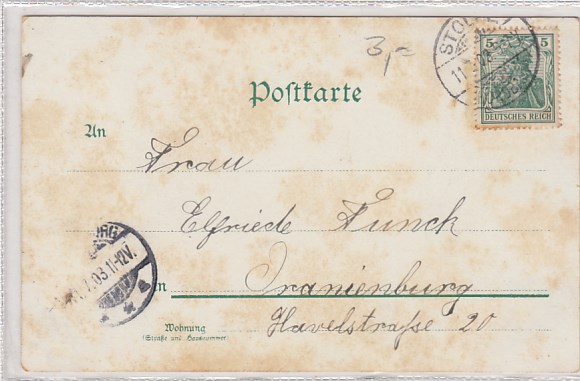 3,=
5 5
DEUTSCHES REICH
Postkarte
An
Frau
Elfriede Funck
in Oranienburg
Havelstraße 20
Wohnung
(Straße und Hausnummer)
.7.03.11-12V.